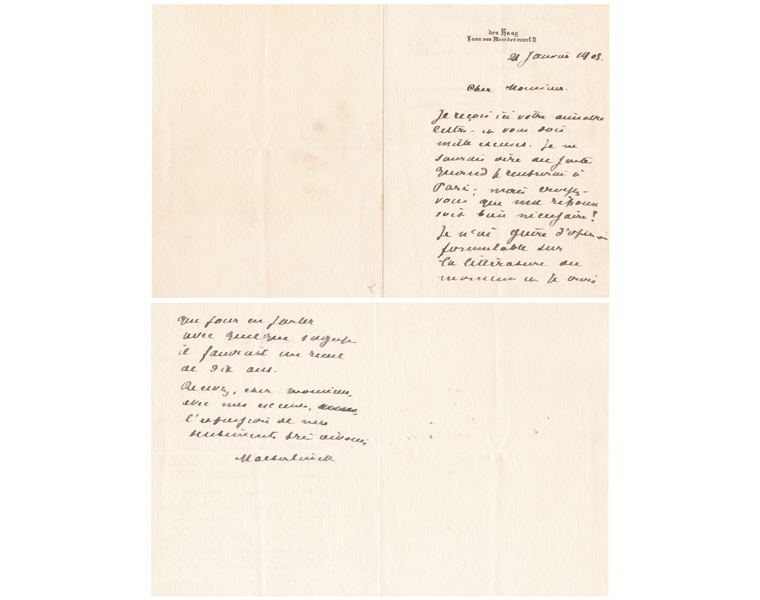 den Haag
Laan van Meerdervoort 11
21 Janvier 1903.
Cher Monsieur.
Je reçois ici votre aimable
lettre - et vous dois
mille excuses. Je ne
saurais dire au juste
quand je rentrerai à
Paris; mais croyez-
vous que ma réponse
soit bien nécessaire?
Je n'ai guère d'opinion
formulable sur
la littérature du
moment et je crois
que pour en parler
avec quelque sagesse
il faudrait un recul
de dix ans.
Recevez, cher monsieur,
avec mes excuses,
l'expression de mes
sentiments très dévoués
Maeterlinck